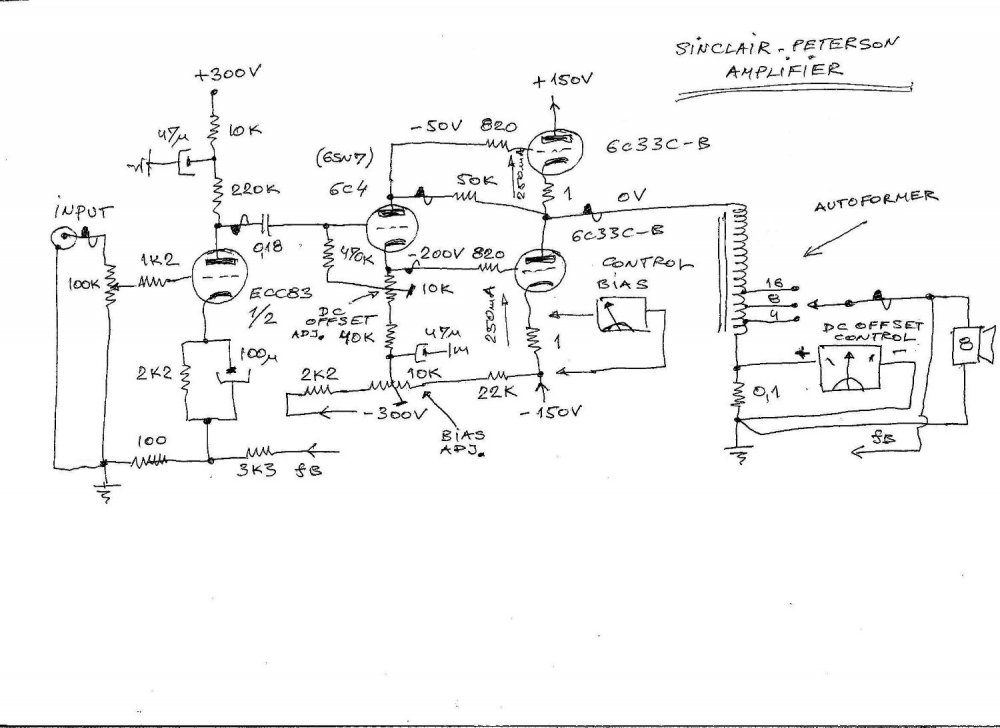 SINCLAIR - PETERSON
AMPLIFIER
+300V
+150V
10K
47µ
-50V 820
6C33C-B
(6SN7)
6C4
250mA
1
220K
50K
0V
AUTOFORMER
INPUT
0,18
6C33C-B
1K2
470K
-200V 820
CONTROL
BIAS
100K
ECC83
1/2
10K
16
8
4
DC
OFFSET
ADJ.
40K
47µ
250mA
1
DC OFFSET
CONTROL
+
-
8
100µ
2K2
2K2
10K
22K
0,1
-300V
-150V
BIAS
ADJ.
100
3K3
fB
fB